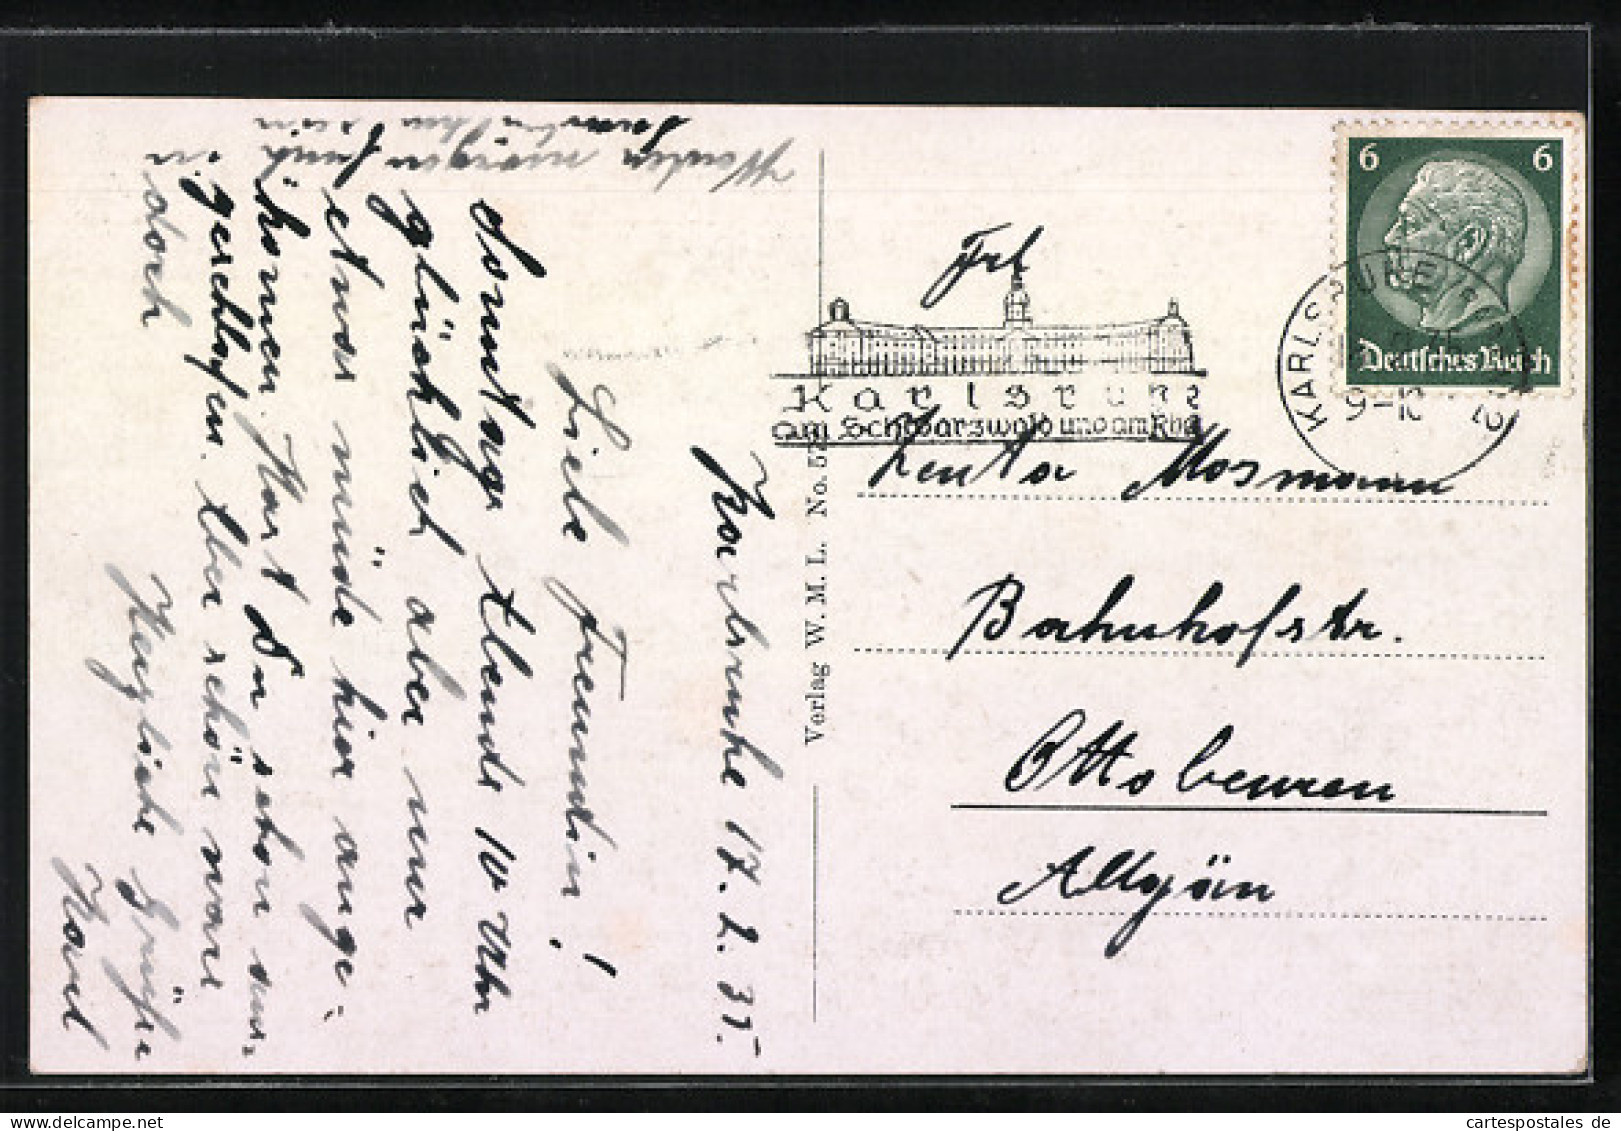 Karlsruhe 17. 2. 35.
Liebe Freundin!
Sonntag Abends 10 Uhr
glücklich aber nur
etwas müde hier ange-
kommen. Hast Du schon
geschlafen. Aber schön war
doch
Herzliche Grüße
Karl
Werden morgen früh
sein
Verlag W. M. L. No. 5
6 6
Deutsches Reich
KARLSRUHE
9-10
2
Karlsruhe
am Schwarzwald und am Rhein
Frl
Zenta Mosmann
Bahnhofstr.
Ottobeuren
Allgäu
www.cartespostales.de
cartespostales.de